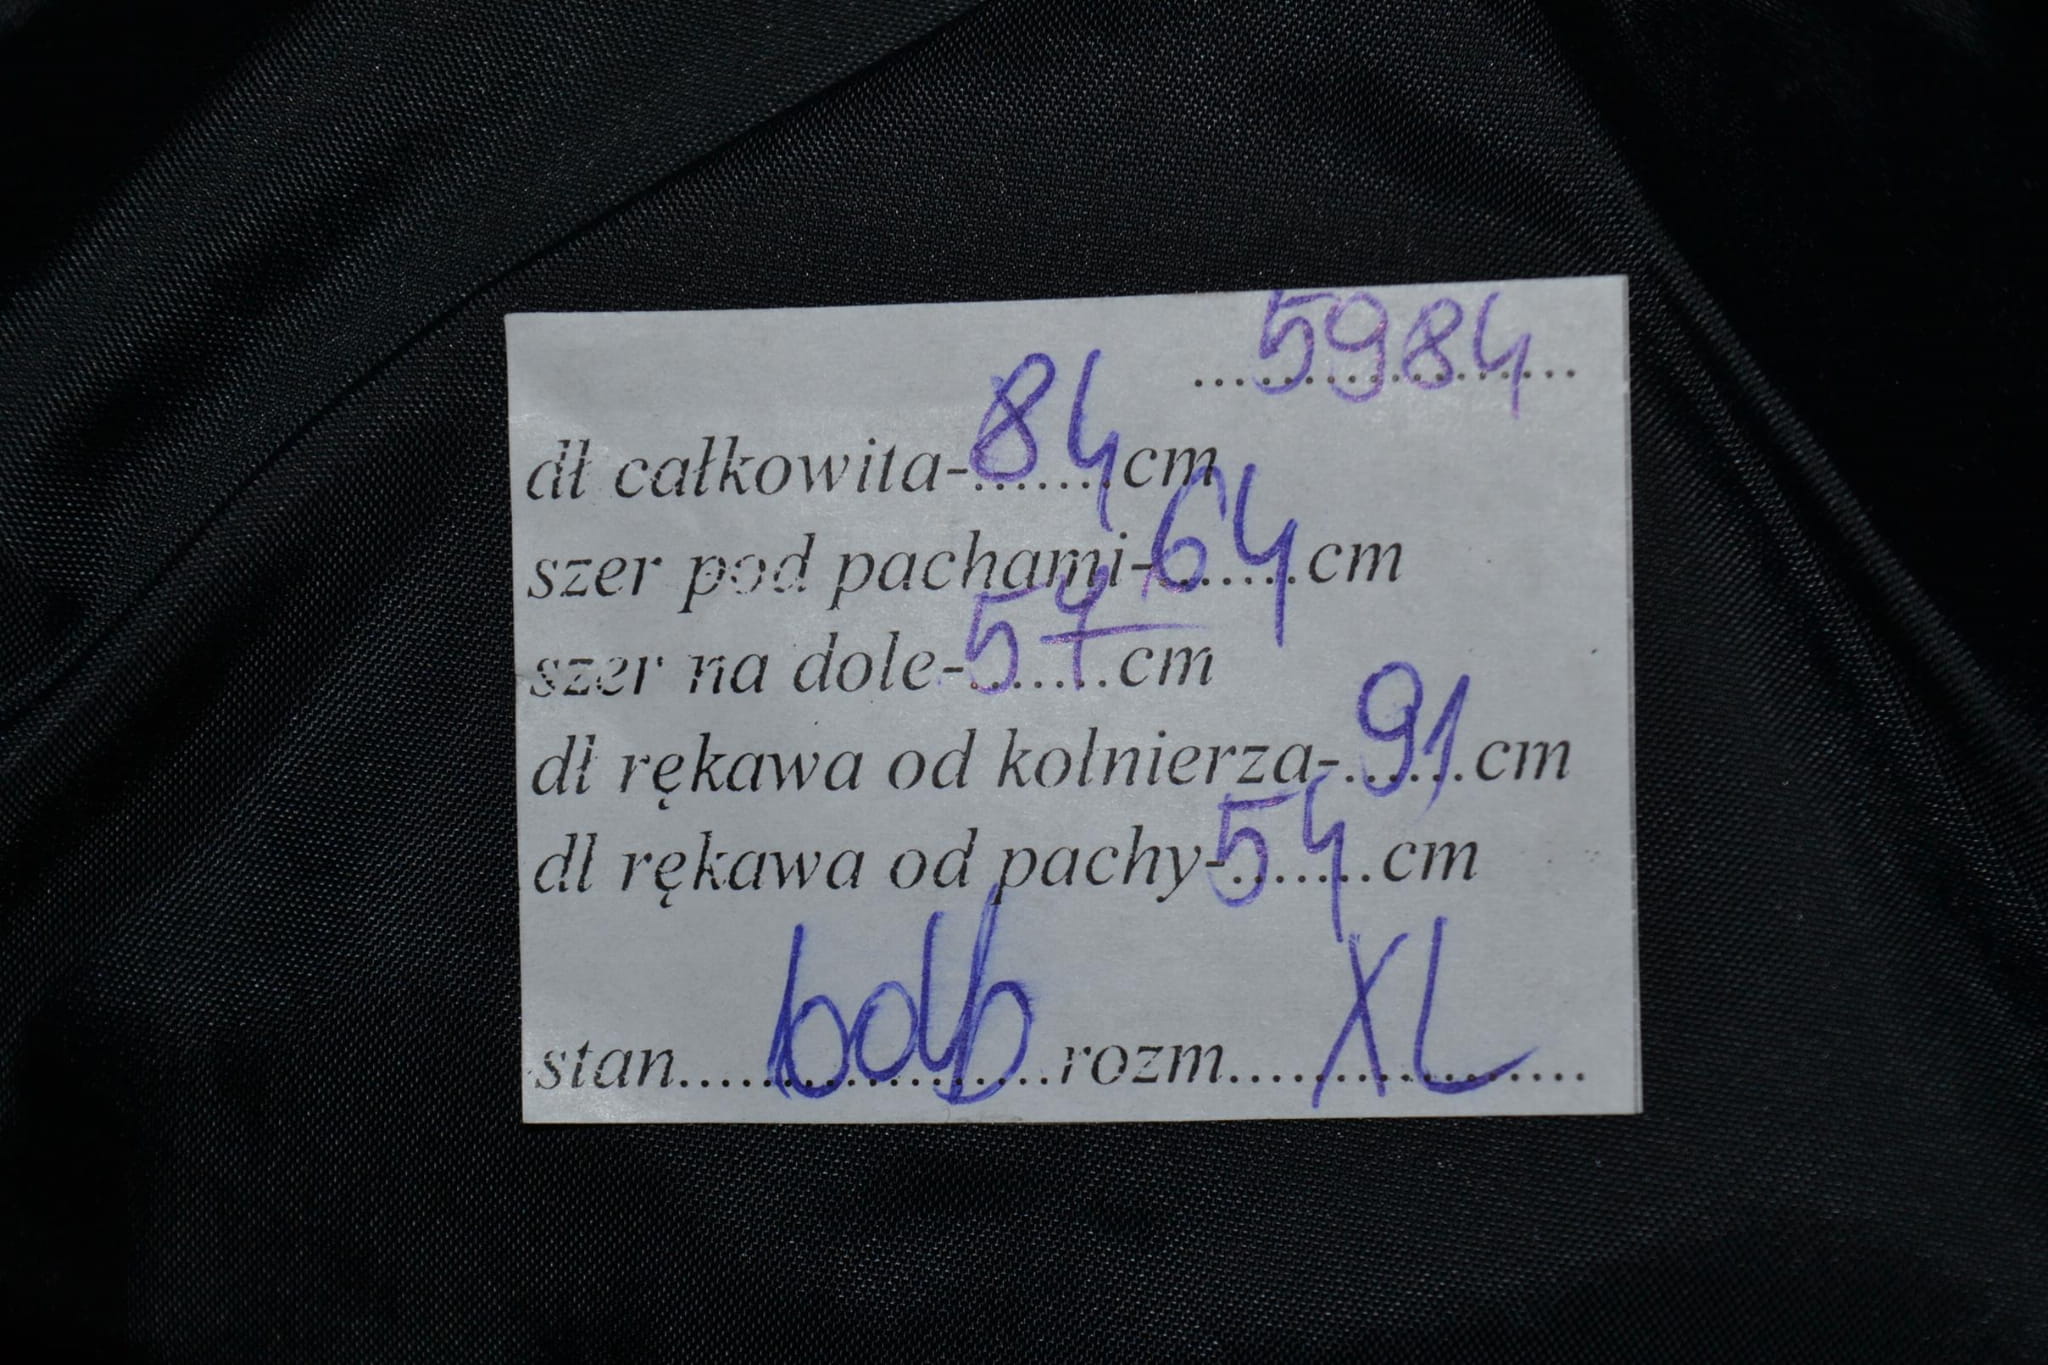 5984
dł całkowita-84cm
szer pod pachami-64cm
szer na dole-57cm
dł rękawa od kołnierza-91cm
dł rękawa od pachy-54cm
stan....bdb....rozm....XL....